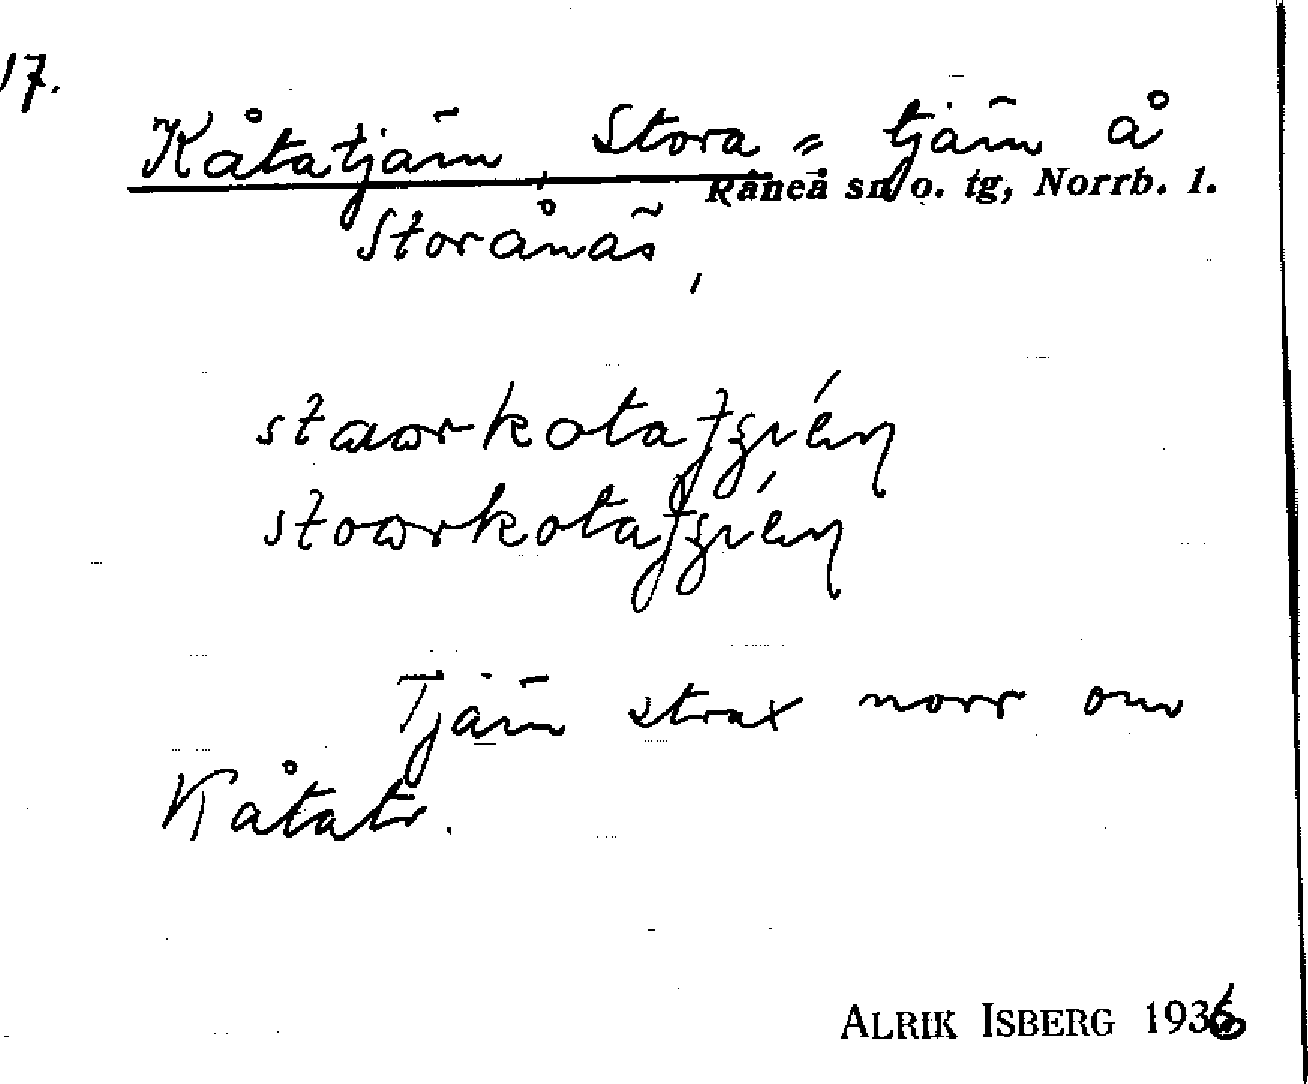 17.
Kåtatjärn, Stora = tjärn å
Råneå sn o. tg, Norrb. l.
Storånäs,
staorkotatjzién
stoorkotatjzién
Tjärn strax norr om
Kåtatr.
ALRIK ISBERG 1936